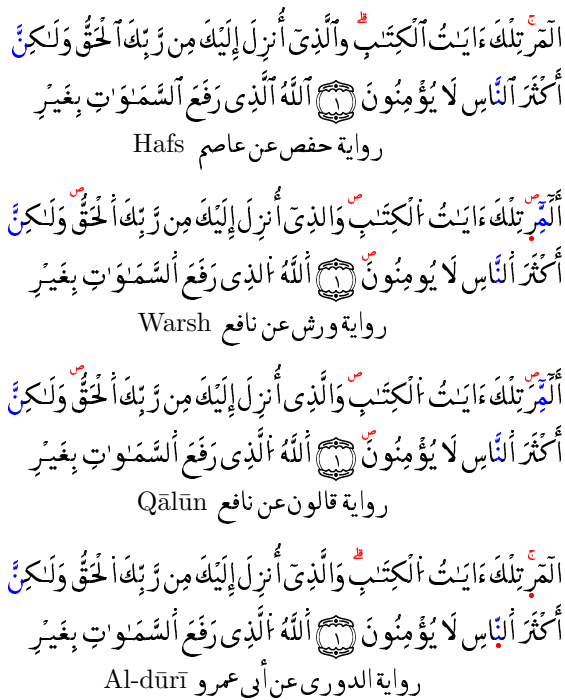 الٓمٓرۚ تِلْكَ ءَايَـٰتُ ٱلْكِتَـٰبِۗ وٱلَّذِىٓ أُنزِلَ إِلَيْكَ مِن رَّبِّكَ ٱلْحَقُّ وَلَـٰكِنَّ
أَكْثَرَ ٱلنَّاسِ لَا يُؤْمِنُونَ ۝١ ٱللَّهُ ٱلَّذِى رَفَعَ ٱلسَّمَـٰوَٰتِ بِغَيْرِ
رواية حفص عن عاصم Hafs
أَلَٓمِّٓرۖ تِلْكَ ءَايَـٰتُ اُ۬لْكِتَـٰبِۖ وَالذِىٓ أُنزِلَ إِلَيْكَ مِن رَّبِّكَ اَ۬لْحَقُّۖ وَلَـٰكِنَّ
أَكْثَرَ اَ۬لنَّاسِ لَا يُومِنُونَۖ ۝١ اَ۬للَّهُ اُ۬لذِى رَفَعَ اَ۬لسَّمَـٰوَٰتِ بِغَيْرِ
رواية ورش عن نافع Warsh
أَلَٓمِّٓرَۖ تِلْكَ ءَايَـٰتُ اُ۬لْكِتَـٰبِۖ وَالَّذِىٓ أُنزِلَ إِلَيْكَ مِن رَّبِّكَ اَ۬لْحَقُّۖ وَلَـٰكِنَّ
أَكْثَرَ اَ۬لنَّاسِ لَا يُؤْمِنُونَۖ ۝١ اَ۬للَّهُ اُ۬لَّذِى رَفَعَ اَ۬لسَّمَـٰوَٰتِ بِغَيْرِ
رواية قالون عن نافع Qālūn
الٓمٓرۚ تِلْكَ ءَايَـٰتُ اُ۬لْكِتَـٰبِۗ وَالَّذِىٓ أُنزِلَ إِلَيْكَ مِن رَّبِّكَ اَ۬لْحَقُّ وَلَـٰكِنَّ
أَكْثَرَ اَ۬لنّ۪اسِ لَا يُؤْمِنُونَ ۝١ اَ۬للَّهُ اُ۬لَّذِى رَفَعَ اَ۬لسَّمَـٰوَٰتِ بِغَيْرِ
رواية الدورى عن أبى عمرو Al-dūrī